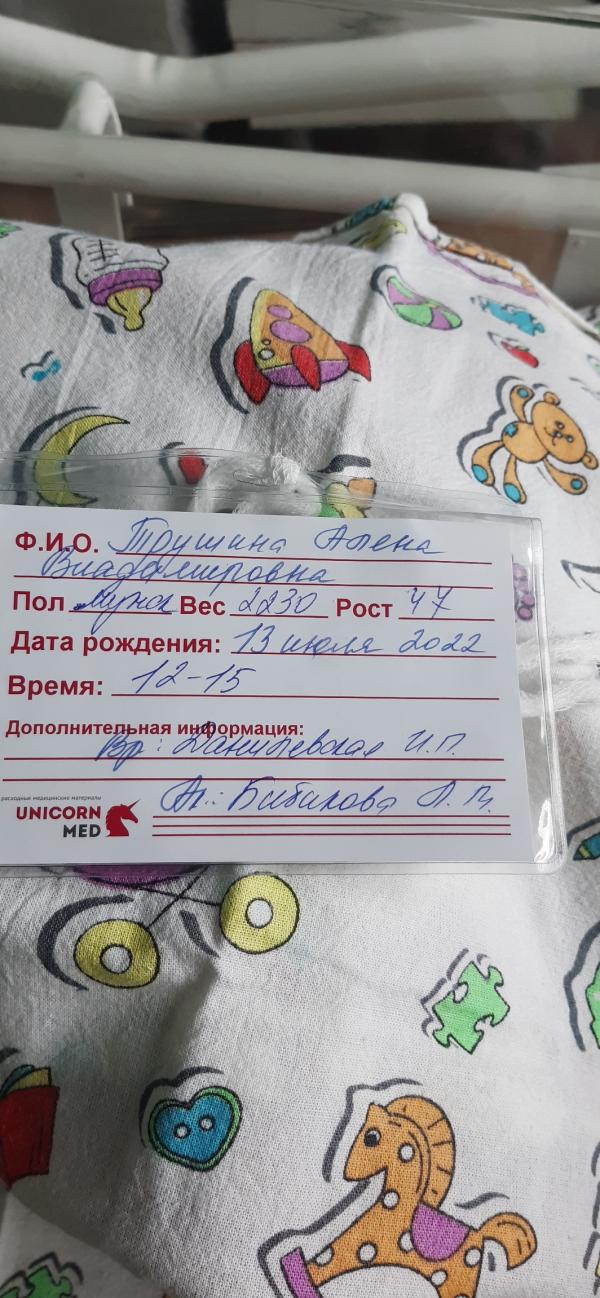 Ф.И.О. Трушина Алена
Владимировна
Пол мужск Вес 2230 Рост 47
Дата рождения: 13 июля 2022
Время: 12-15
Дополнительная информация:
Вр: Данилевская И.П.
расходные медицинские материалы
UNICORN
MED
Ак.: Бибикова Л.